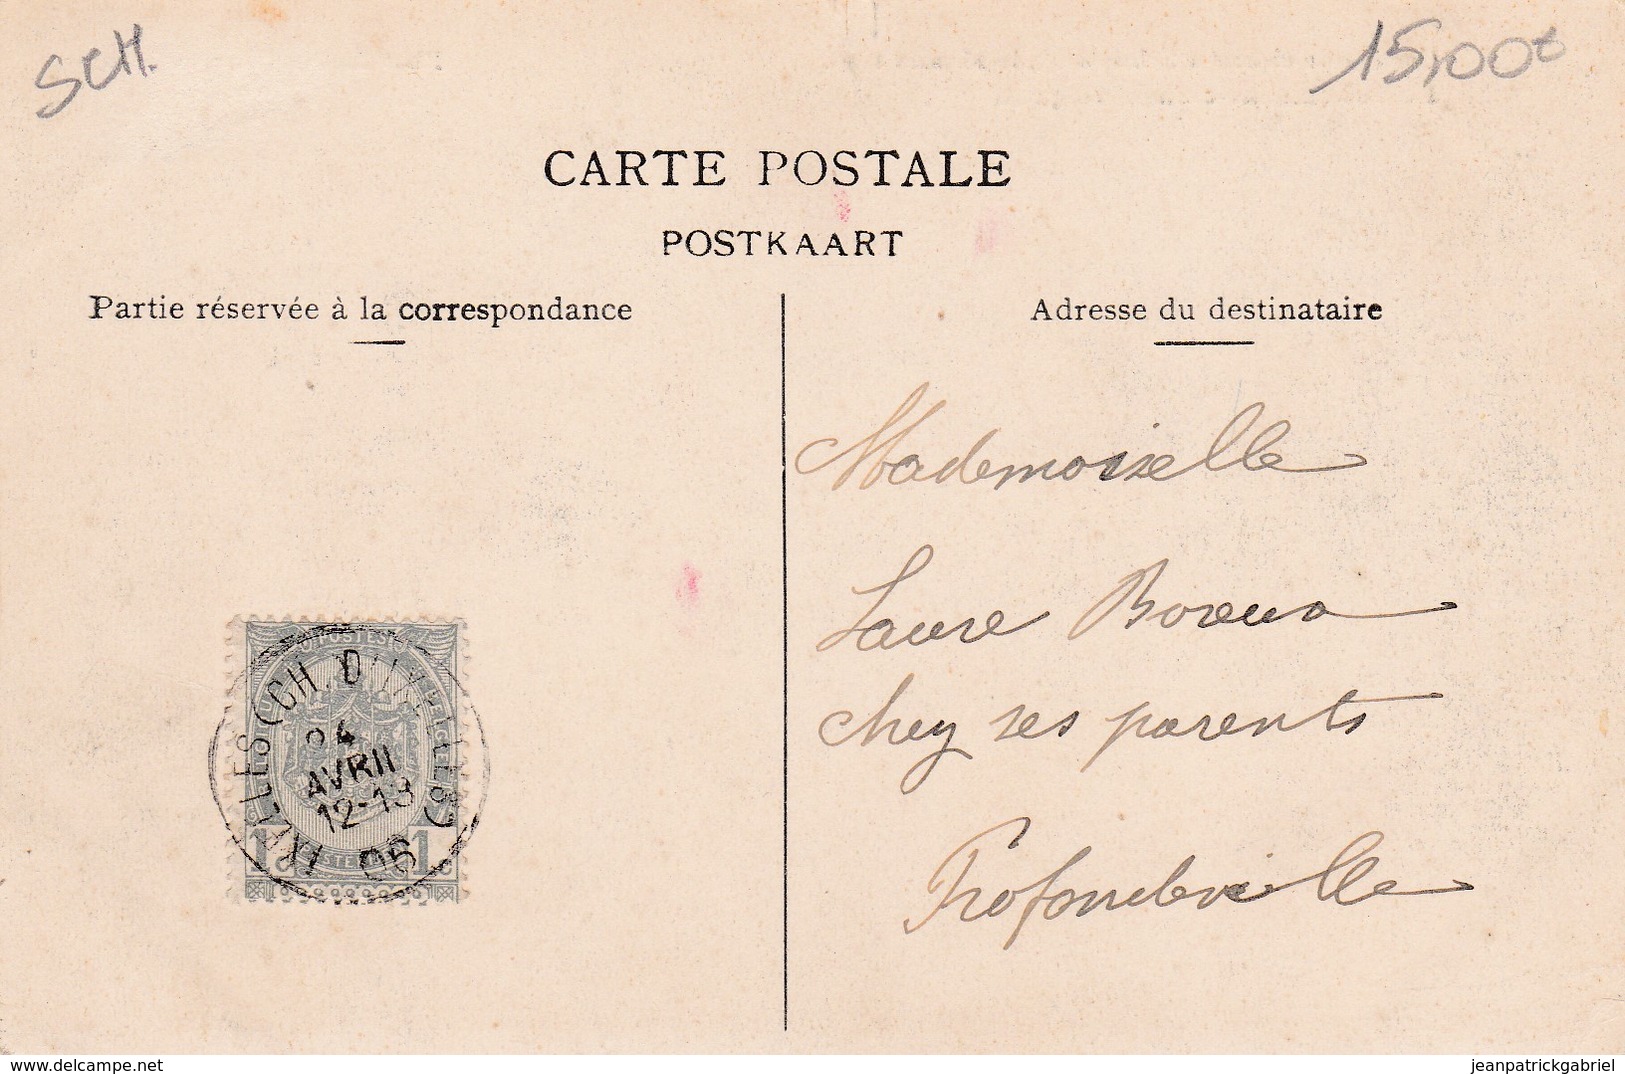 SCH.
15,00€
CARTE POSTALE
POSTKAART
Partie réservée à la correspondance
Adresse du destinataire
Mademoiselle
Laure Boreux
chez ses parents
Profondeville
POSTES
IXELLES (CH. D'IXELLES)
24
AVRIL
12-13
06
1 1
www.delcampe.net
jeanpatrickgabriel